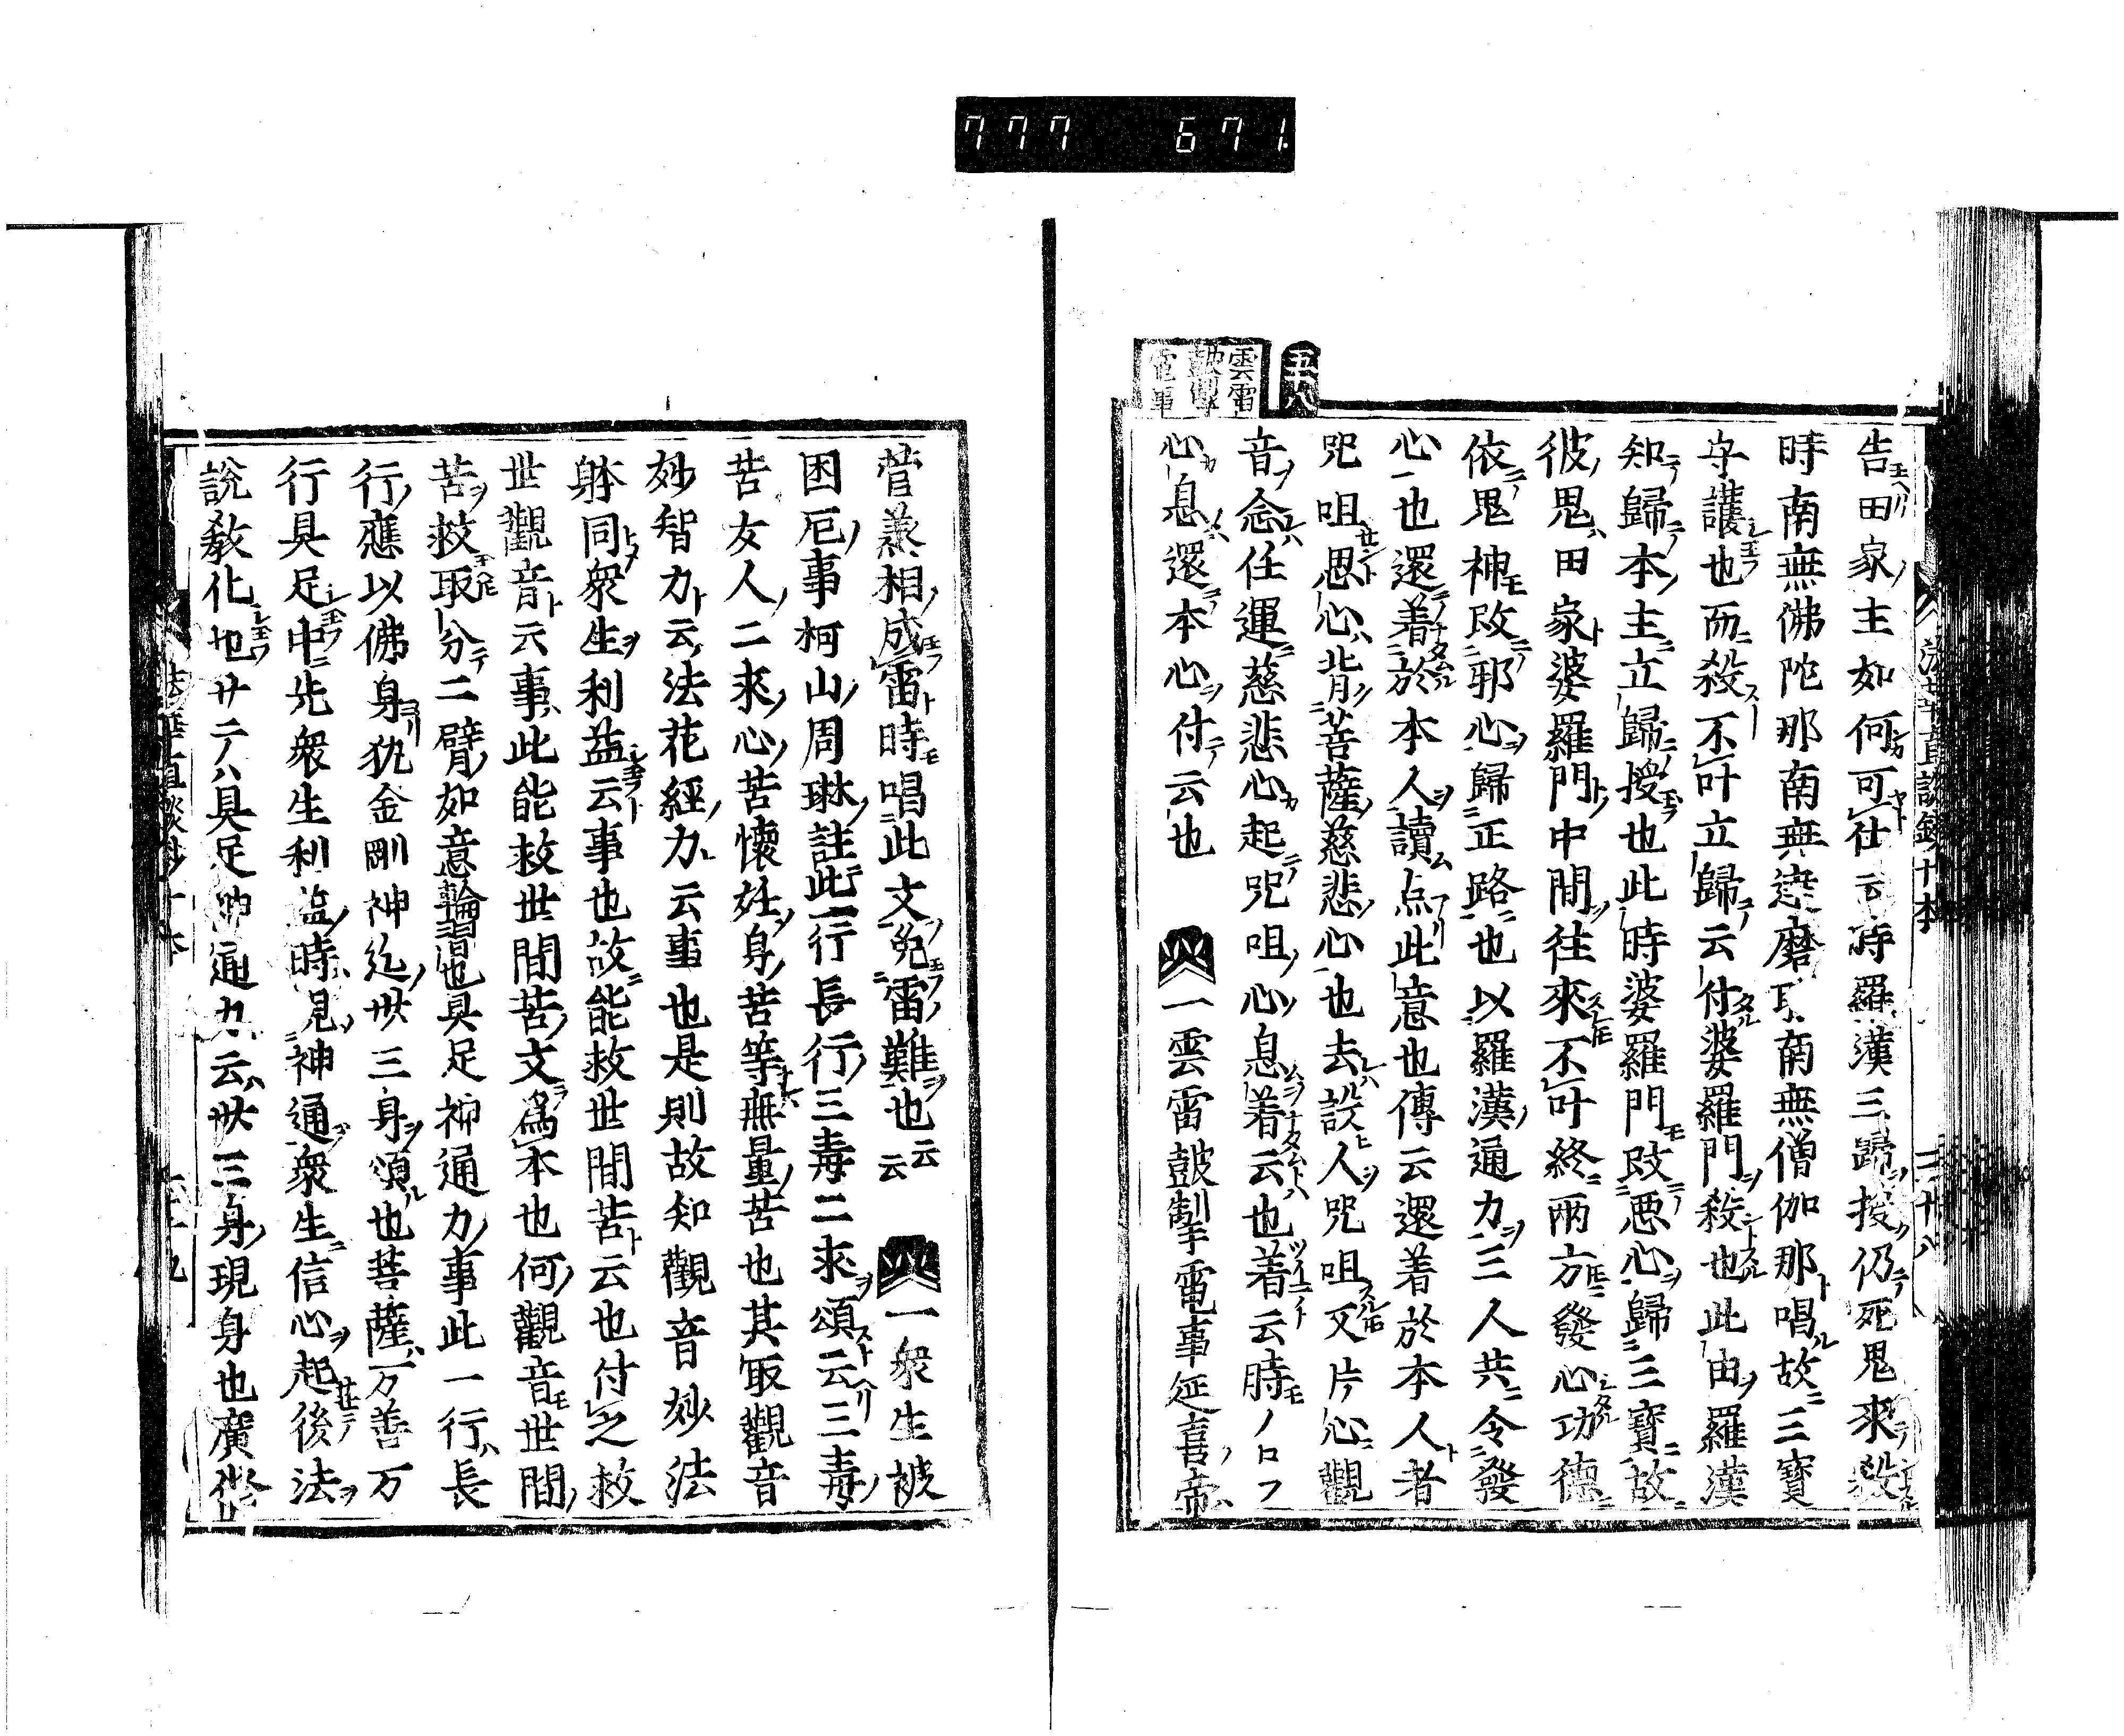 777 671
五八
雲雷
鼓掣
電事
告田家主如何可仕云時羅漢三歸授仍死鬼來殺
時南無佛陀那南無達磨耶南無僧伽那唱故三寶
守護也而殺不叶立歸云付婆羅門殺也此由羅漢
知歸本主立歸授也此時婆羅門改悪心歸三寶故
彼鬼田家婆羅門中間往來不叶終兩方發心功德
依鬼神改邪心歸正路也以羅漢通力三人共令發
心也還着於本人讀点此意也傳云還着於本人者
咒咀思心背菩薩慈悲心也去設人咒咀又片心觀
音念任運慈悲心起咒咀心息着云也着云時ノロフ
心息還本心付云也 一雲雷鼓掣電事延喜帝
菅羕相成雷時唱此文免雷難也云云 一衆生被
困厄事柯山周琳註此一行長行三毒二求頌云三毒
苦女人二求心苦懷妊身苦等無量苦也其取觀音
妙智力云法花經力云事也是則故知觀音妙法
躰同衆生利益云事也故能救世間苦云也付之救
世觀音云事此能救世間苦文爲本也何觀音世間
苦救取分二臂如意輪習也具足神通力事此一行長
行應以佛身犱金剛神迄卅三身頌也菩薩万善万
行具足中先衆生利益時現神通衆生信心起後法
說教化也廿二八具足神通力云卅三身現身也廣